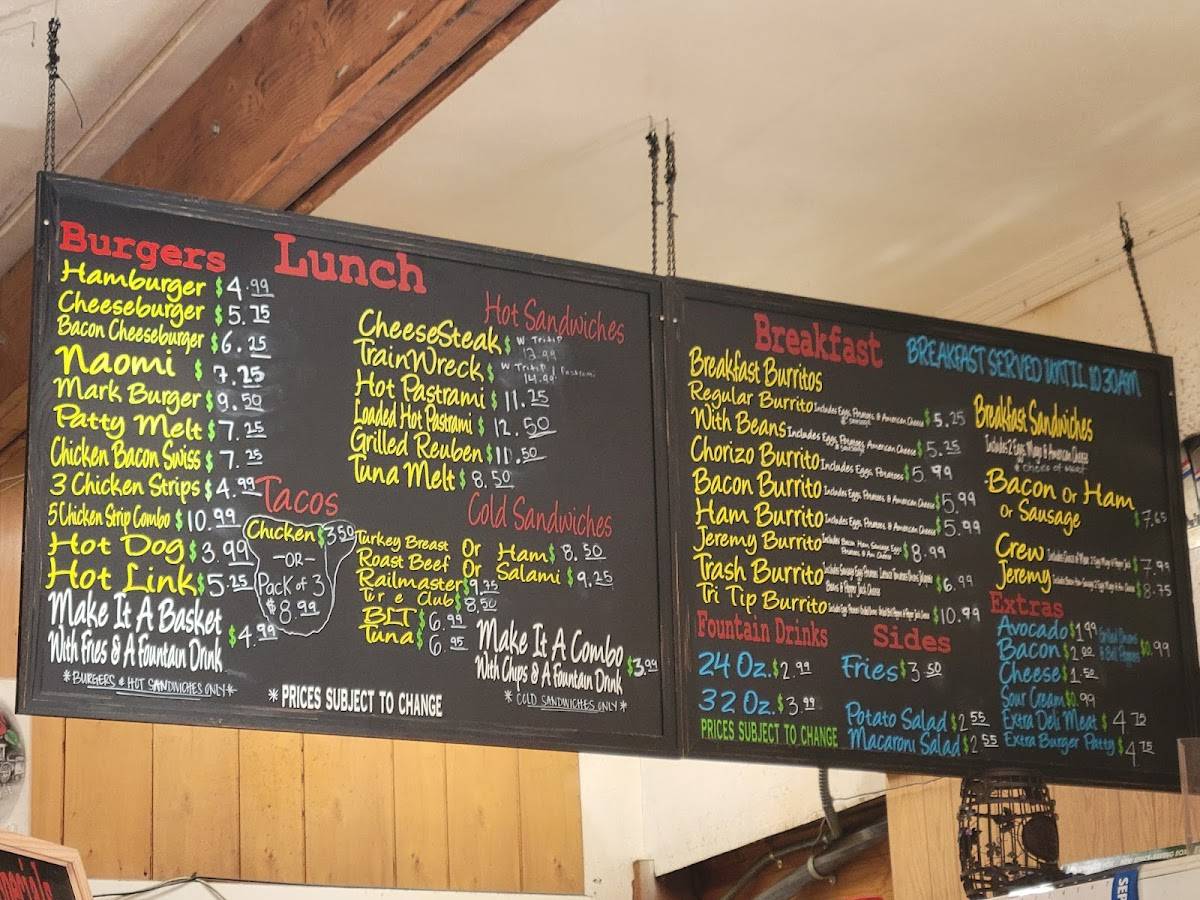 Burgers
Hamburger $4.99
Cheeseburger $5.75
Bacon Cheeseburger $6.25
Naomi $7.25
Mark Burger $9.50
Patty Melt $7.25
Chicken Bacon Swiss $7.25
3 Chicken Strips $4.99
5 Chicken Strip Combo $10.99
Hot Dog $3.99
Hot Link $5.25
Make It A Basket
With Fries & A Fountain Drink $4.99
*BURGERS & HOT SANDWICHES ONLY*
Lunch
Hot Sandwiches
CheeseSteak $ W Tritip
13.99
TrainWreck $ W Tritip / Pastrami
14.99
Hot Pastrami $11.25
Loaded Hot Pastrami $12.50
Grilled Reuben $11.50
Tuna Melt $8.50
Tacos
Chicken $3.50
-OR-
Pack of 3
$8.99
Cold Sandwiches
Turkey Breast Or Ham $8.50
Roast Beef Or Salami $9.25
Railmaster $9.75
Tur e Club $8.50
BLT $6.99
Tuna $6.95
Make It A Combo
With Chips & A Fountain Drink $3.99
*COLD SANDWICHES ONLY*
*PRICES SUBJECT TO CHANGE
Breakfast
BREAKFAST SERVED UNTIL 10:30AM
Breakfast Burritos
Regular Burrito Includes Eggs, Potatoes, & American Cheese $5.25
& sausage
With Beans Includes Eggs, Potatoes, American Cheese $5.25
& sausage
Chorizo Burrito Includes Eggs, Potatoes $5.99
Bacon Burrito Includes Eggs, Potatoes & American Cheese $5.99
Ham Burrito Includes Eggs, Potatoes & American Cheese $5.99
Jeremy Burrito Includes Bacon, Ham, Sausage, Eggs $8.99
Potatoes & Am Cheese
Trash Burrito Includes Sausage, Eggs, Potatoes $6.99
Beans & Pepper Jack Cheese
Tri Tip Burrito $10.99
Breakfast Sandwiches
Includes 2 Eggs, Mayo & American Cheese
& choice of meat
Bacon Or Ham
Or Sausage $7.65
Crew $7.99
Jeremy $8.75
Fountain Drinks
24 Oz. $2.99
32 Oz. $3.99
PRICES SUBJECT TO CHANGE
Sides
Fries $3.50
Potato Salad $2.55
Macaroni Salad $2.55
Extras
Avocado $1.99
Bacon $2.00
Grilled Onions
& Bell Peppers $0.99
Cheese $1.50
Sour Cream $0.99
Extra Deli Meat $4.75
Extra Burger Patty $4.75
SEP